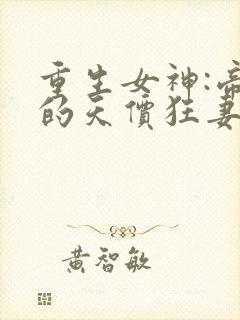 重生女神:帝
的天價狂妻
黃智敏